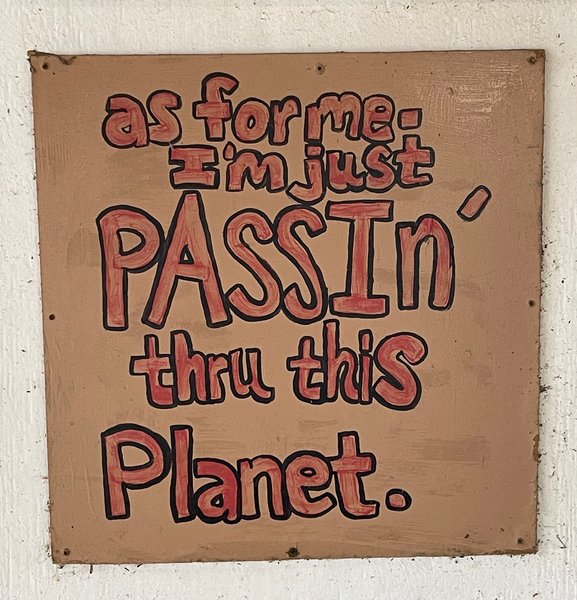 as for me-
I'm just
PASSIn'
thru this
Planet.